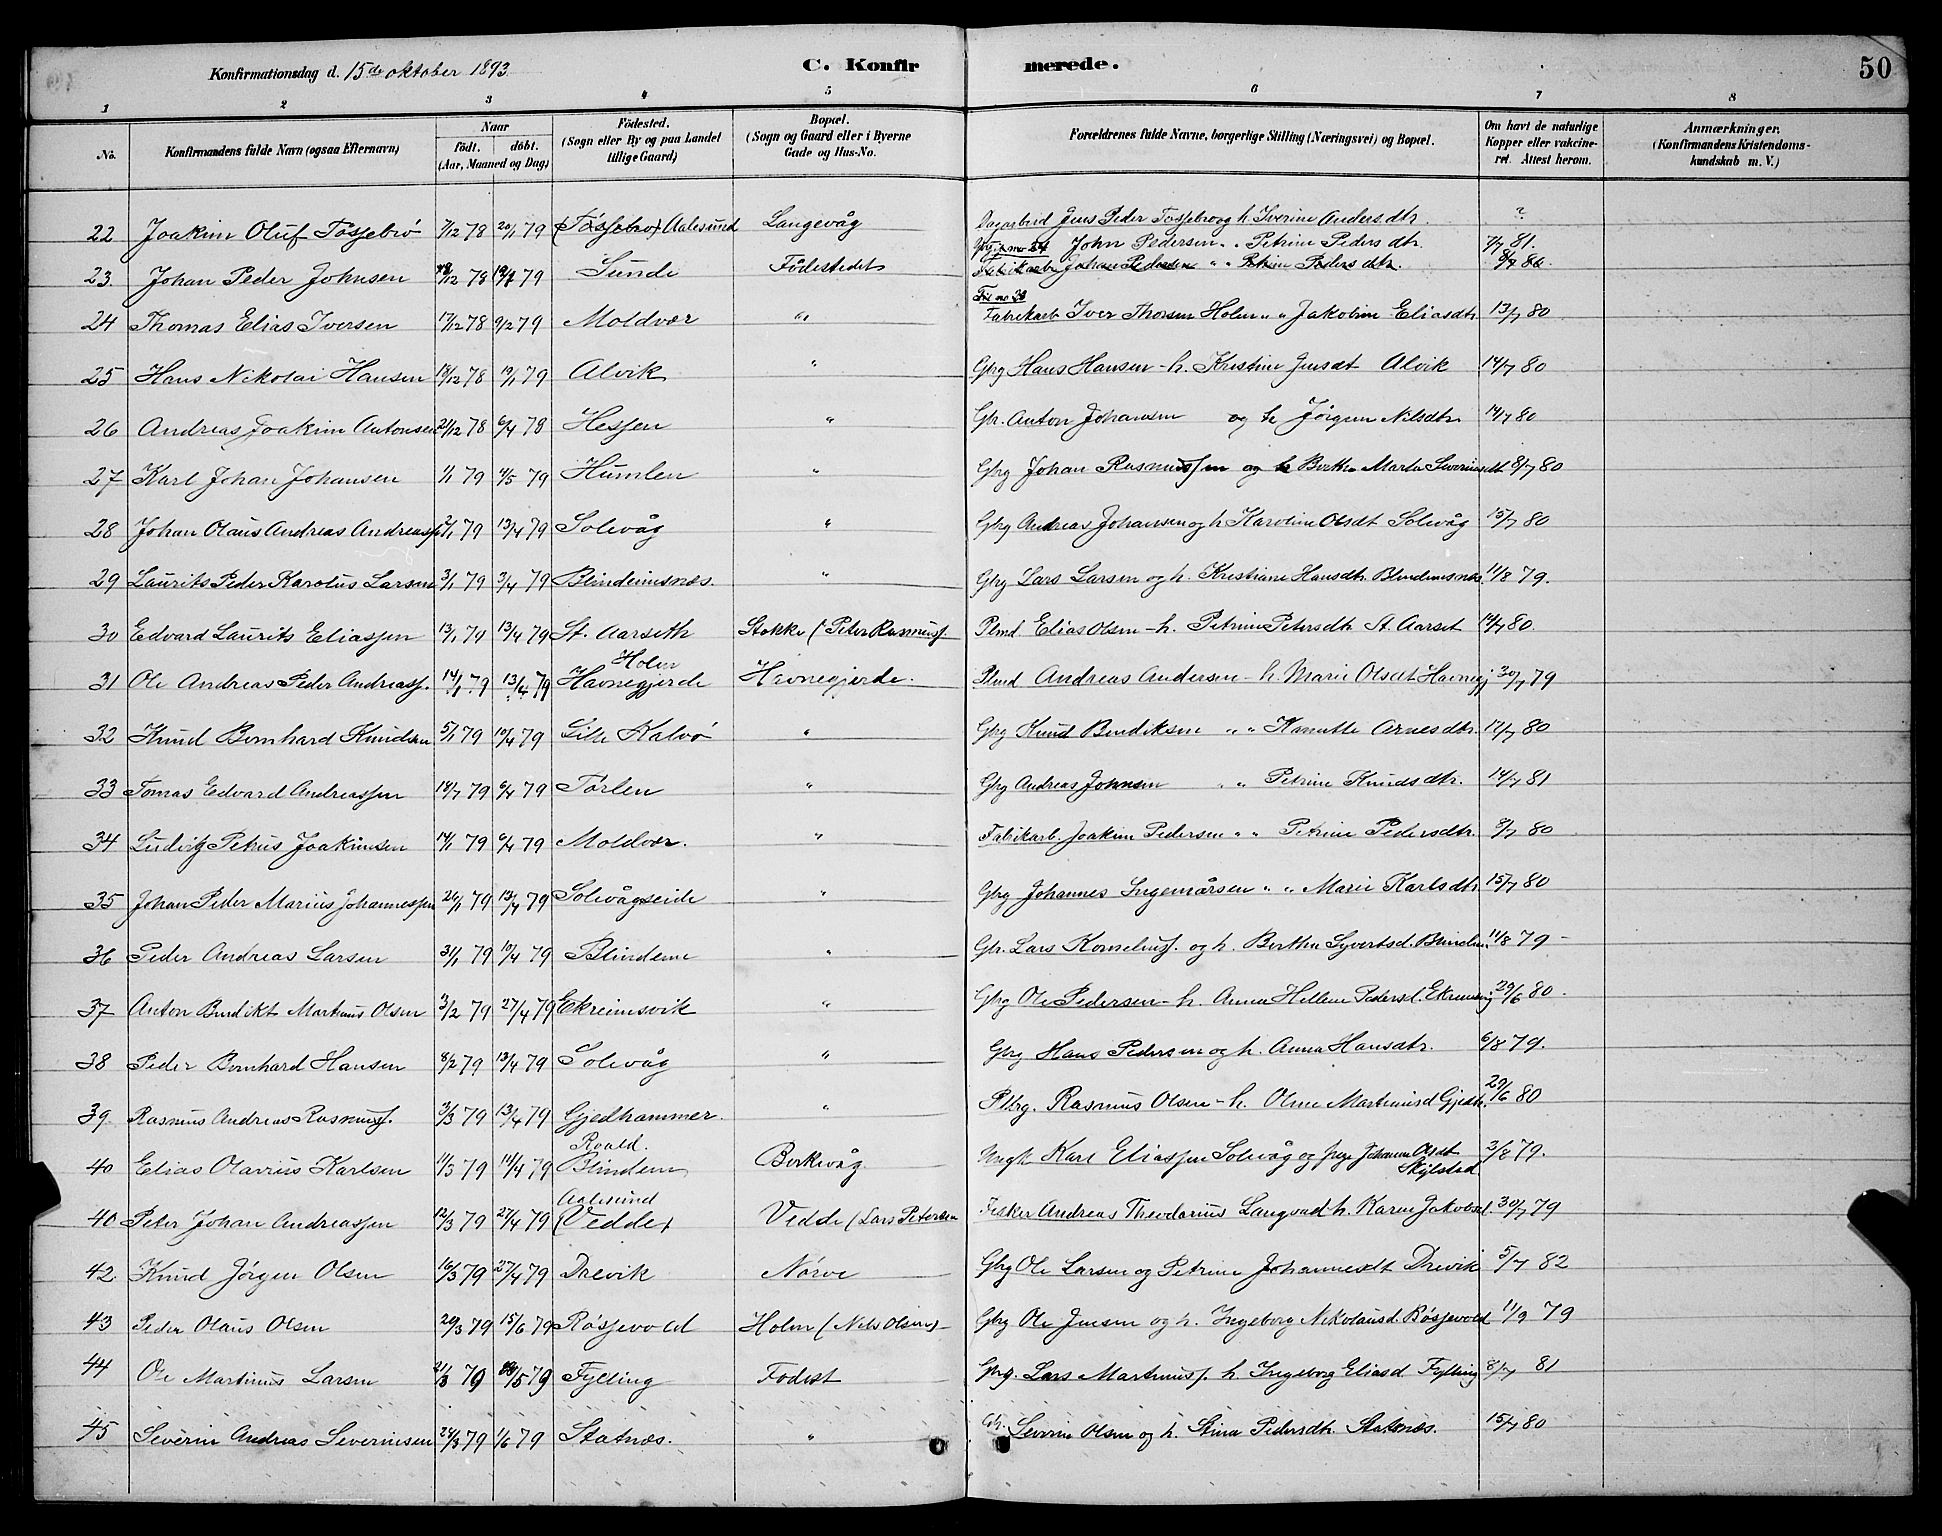 Konfirmationsdag d. 15de oktober 1893. C. Konfirmerede. 50
1 2 3 4 5 6 7 8
No. Konfirmandens fulde Navn (ogsaa Efternavn) Naar födt. döbt. (Aar, Maaned og Dag) Födested. (Sogn eller By og paa Landet tillige Gaard) Bopæl. (Sogn og Gaard eller i Byerne Gade og Hus-No. Forældrenes fulde Navne, borgerlige Stilling (Næringsvei) og Bopæl. Om havt de naturlige Kopper eller vakcineret. Attest herom. Anmærkninger. (Konfirmandens Kristendomskundskab m. V.)
22 Joakim Oluf Tossebrö 7/12 78 20/1 79 (Tossebro) Aalesund Langevåg Dagarbeid Jens Peder Tossebro og h. Iverine Andersdtr. ?
23. Johan Peder Johnsen /12 78 79 Sunde Födestedet John Pedersen " " Petrine Pedersdtr. 7/7 81.
Fabrikarb Johan Pedersen " " Petrine Pedersdtr. 8/7 80.
24 Thomas Elias Iversen 17/12 78 9/2 79 Moldvær " Fabrikarb Iver Thorsen Holen " " Jakobine Eliasdtr 13/7 80
25 Hans Nikolai Hansen 18/12 78 19/1 79 Alvik " Gbrg Hans Hansen - h. Kristine Jensdt Alvik 14/7 80
26 Andreas Joakim Antonsen 21/12 78 6/4 78 Hessen " Gbr. Anton Johansen og h Jörgine Nilsdtr 14/7 80
27 Karl Johan Johansen 1/1 79 4/5 79 Humlen " Gbrg Johan Rasmussen og h Berthe Marta Severinsdt 8/7 80
28 Johan Olaus Andreas Andreass 2/1 79 13/4 79 Solevåg " Gbrg Andreas Johansen og h Karoline Olsdt Solevåg 15/7 80
29 Laurits Peder Karolus Larsen 3/1 79 3/4 79 Blindeimsnæs. " Gbrg Lars Larsen og h. Kristiane Hansdtr. Blindeimsnæs. 11/8 79.
30 Edvard Laurits Eliassen 13/1 79 13/4 79 St. Aarseth Stokke (Peter Rasmuss. Plmd Elias Olsen - h. Petrine Petersdtr St. Aarset 14/7 80.
31 Ole Andreas Peder Andreass. 14/1 79 13/4 79 Holen Havnegjerde Havnegjerde. Plmd Andreas Andersen - h. Marie Olsdt Havnegj 30/7 79
32 Knud Bernhard Knudsen 5/1 79 10/4 79 Lille Kalvö " Gbrg Knud Bendiksen " " Kanutte Arnesdtr. 12/7 80
33 Tomas Edvard Andreassen 18/1 79 6/4 79 Tørlen " Gbrg Andreas Johnsen " " Petrine Knudsdtr. 14/7 81
34 Ludvig Petrus Joakimsen 14/1 79 6/4 79 Moldvær. " Fabrikarb. Joakim Pedersen " " Petrine Pedersdtr. 8/7 80
35 Johan Peder Marius Johannessen 20/1 79 13/4 79 Solevågseide " Gbrg Johannes Ingemårsen " " Marie Karlsdtr. 15/7 80
36 Peder Andreas Larsen 31/1 79 10/4 79 Blindeme " Gbr. Lars Korneliuss. og h. Berthe Syvertsd. Blindem. 11/8 79 -
37 Anton Bendikt Martinus Olsen 3/2 79 27/4 79 Ekreimsvik " Gbrg Ole Pedersen - h. Anna Hellene Pedersd. Ekreimsvig 29/6 80.
38 Peder Bernhard Hansen 8/2 79 13/4 79 Solevåg " Gbrg Hans Pedersen og h. Anna Hansdtr. 6/8 79.
39. Rasmus Andreas Rasmuss. 3/3 79 13/4 79 Gjedhammer. " Plbrg. Rasmus Olsen - h. Oline Martinusd Gjedh. 29/6 80
40 Elias Olavius Karlsen 11/3 79 14/4 79 Roald. Blindem Borkevåg Ungk Karl Eliassen Solevåg og pige Johanne Olsdt Skylstad 3/8 79.
40 Peter Johan Andreassen 12/3 79 27/4 79 Aalesund (Vedde) Vedde (Lars Petersen Fisker Andreas Theodorius Langvad h. Karen Jakobsd. 30/7 79
42. Knud Jörgen Olsen 16/3 79 27/4 79 Drevik Nørve Gbrg Ole Larsen og Petrine Johannesdt Drevik 5/7 82
43 Peder Olaus Olsen 20/3 79 15/6 79 Røssevold Holen (Nils Olsen) Gbrg Ole Jensen og h. Ingeborg Nikolausd. Røssevold 11/9 79
44 Ole Martinus Larsen 21/3 79 /5 79 Fylling Fodest Gbrg. Lars Martinuss. h Ingeborg Eliasd Fylling 8/7 81
45 Severin Andreas Severinsen 24/3 79 1/6 79 Statnæs. " Gbr. Severin Olsen og h. Stina Pedersdtr. Statnæs. 15/7 80